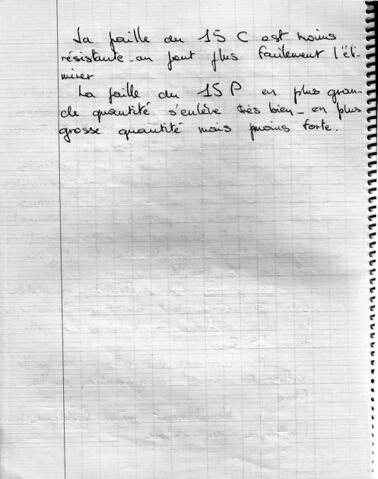 La paille du 15 C est moins
résistante. on peut plus facilement l'éli-
miner
La paille du 15 P en plus gran-
de quantité s'enlève très bien - en plus
grosse quantité mais moins forte.